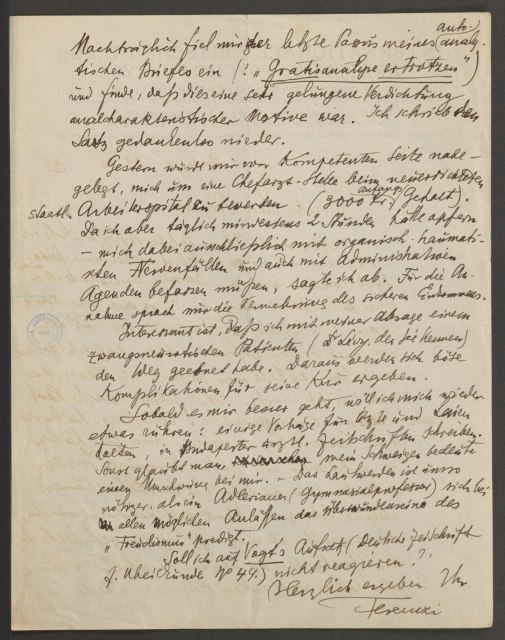 Nachträglich fiel mir der letzte Passus meines (auto-)analy-
tischen Briefes ein (: „Gratisanalyse ertrotzen")
und finde, daß dies eine sehr gelungene Verdichtung
analcharakteristischer Motive war. Ich schrieb den
Satz gedankenlos nieder.
Gestern wurde mir von kompetenter Seite nahe-
gelegt, mich um eine Chefarzt-Stelle beim neuerrichteten
staatl. Arbeiterspital zu bewerben. (3000 Kr. Gehalt).
anfangs
Da ich aber täglich mindestens 2 Stunden hätte opfern
– mich dabei ausschließlich mit organisch-traumati-
schen Nervenfällen und auch mit administrativen
Agenden befassen müßen, sagte ich ab. Für die An-
nahme sprach nur die Vermehrung des sicheren Einkommens.
Interessant ist, daß ich mit meiner Absage einem
zwangsneurotischen Patienten (Dr. Lévy, den Sie kennen)
den Weg geebnet habe. Daraus werden sich böse
Komplikationen für seine Kur ergeben.
Sobald es mir besser geht, will ich mich wieder
etwas rühren: einige Vorträge für Ärzte und Laien
halten, in Budapester ärztl. Zeitschriften schreiben.
Sonst glaubt man, mein Schweigen bedeute
einen Umschwung bei mir. – Das Lautwerden ist umso
nötiger, als ein Adlerianer (Gymnasialprofessor) sich bei
allen möglichen Anläßen das Überwundensein des
„Freudismus" predigt.
Soll ich auf Vogt's Aufsatz (Deutsche Zeitschrift
f. Nheilkunde No 49.) nicht reagieren?
Herzlich ergeben Ihr
Ferenczi